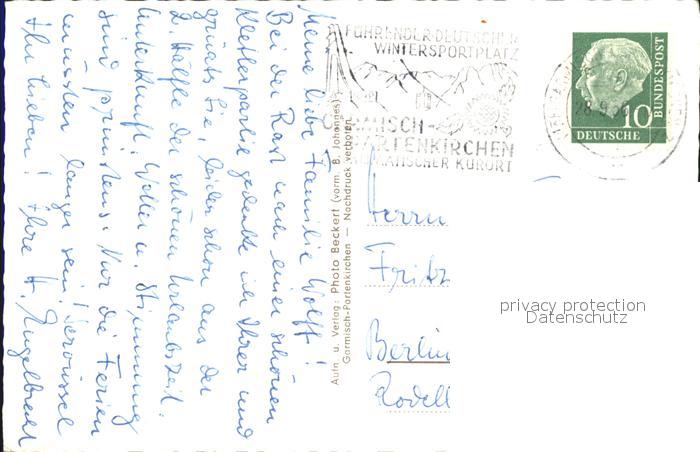 Meine liebe Familie Wolff!
Bei der Rast nach einer schönen
Kletterpartie gedenke ich Ihrer und
grüße Sie, leider schon aus der
2. Hälfte der schönen Urlaubszeit.
Unterkunft, Wetter u. Stimmung
sind prima. Nur die Ferien
müssten länger sein!
Ihr Lieben! Ihre H. Engelbrecht
Aufn. u. Verlag: Photo Beckert (vorm. B. Johannes)
Garmisch-Partenkirchen — Nachdruck verboten
FÜHRENDER DEUTSCHER
WINTERSPORTPLATZ
MISCH-
RTENKIRCHEN
KLIMATISCHER KURORT
28.9.56
10
DEUTSCHE
BUNDESPOST
Herrn
Fritz
Berlin
Rodell
privacy protection
Datenschutz